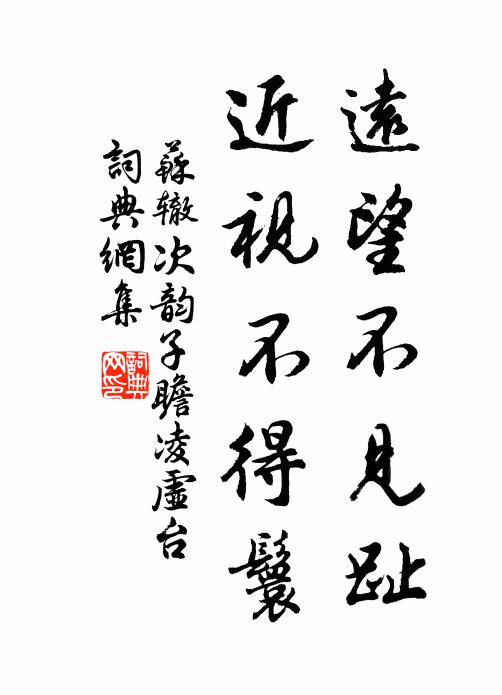 遠望不見趾
近視不得鬟
蘇辙次韵子瞻凌虛台
詞典網集
詞典
网印